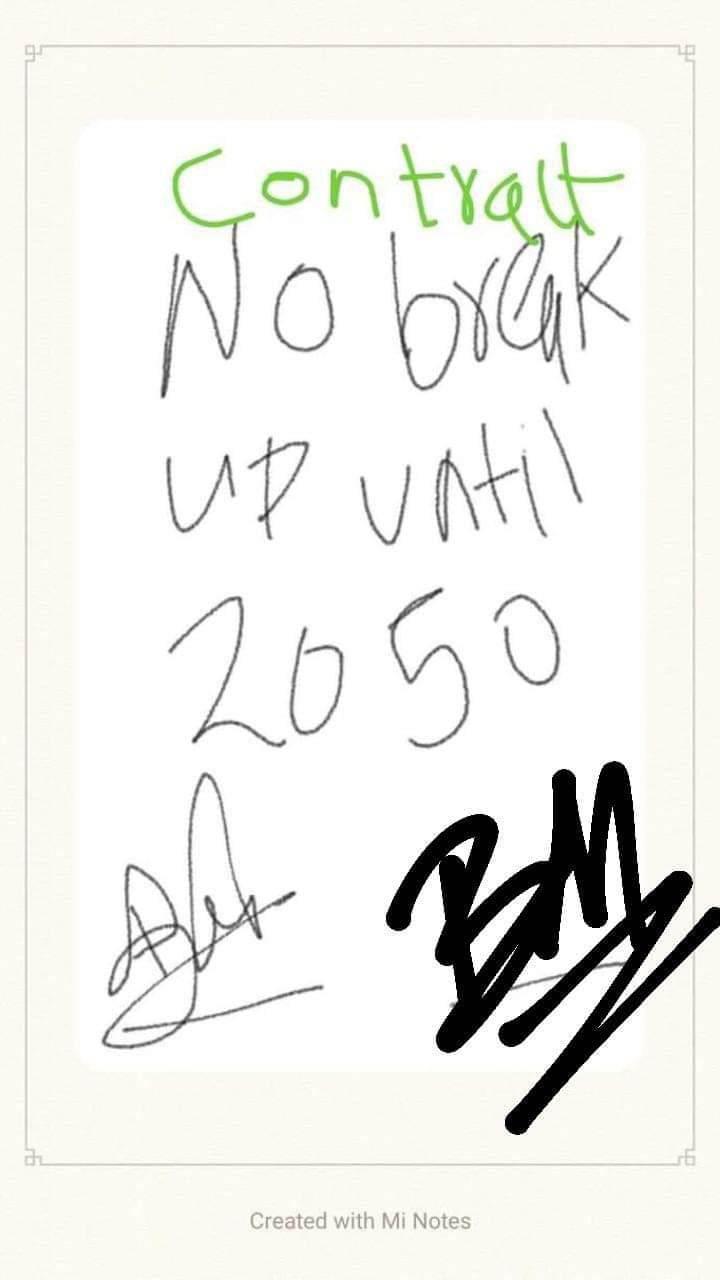 Contract
No break
up until
2050
BM
Created with Mi Notes